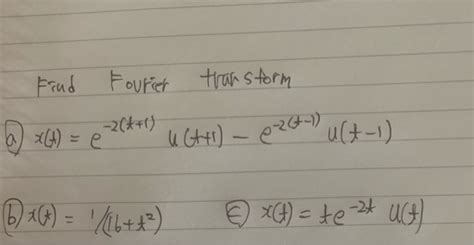 Find Fourier transform
a) x(t) = e^{-2(t+1)} u(t+1) - e^{-2(t-1)} u(t-1)
b) x(t) = 1/(16+t²) c) x(t) = te^{-2t} u(t)